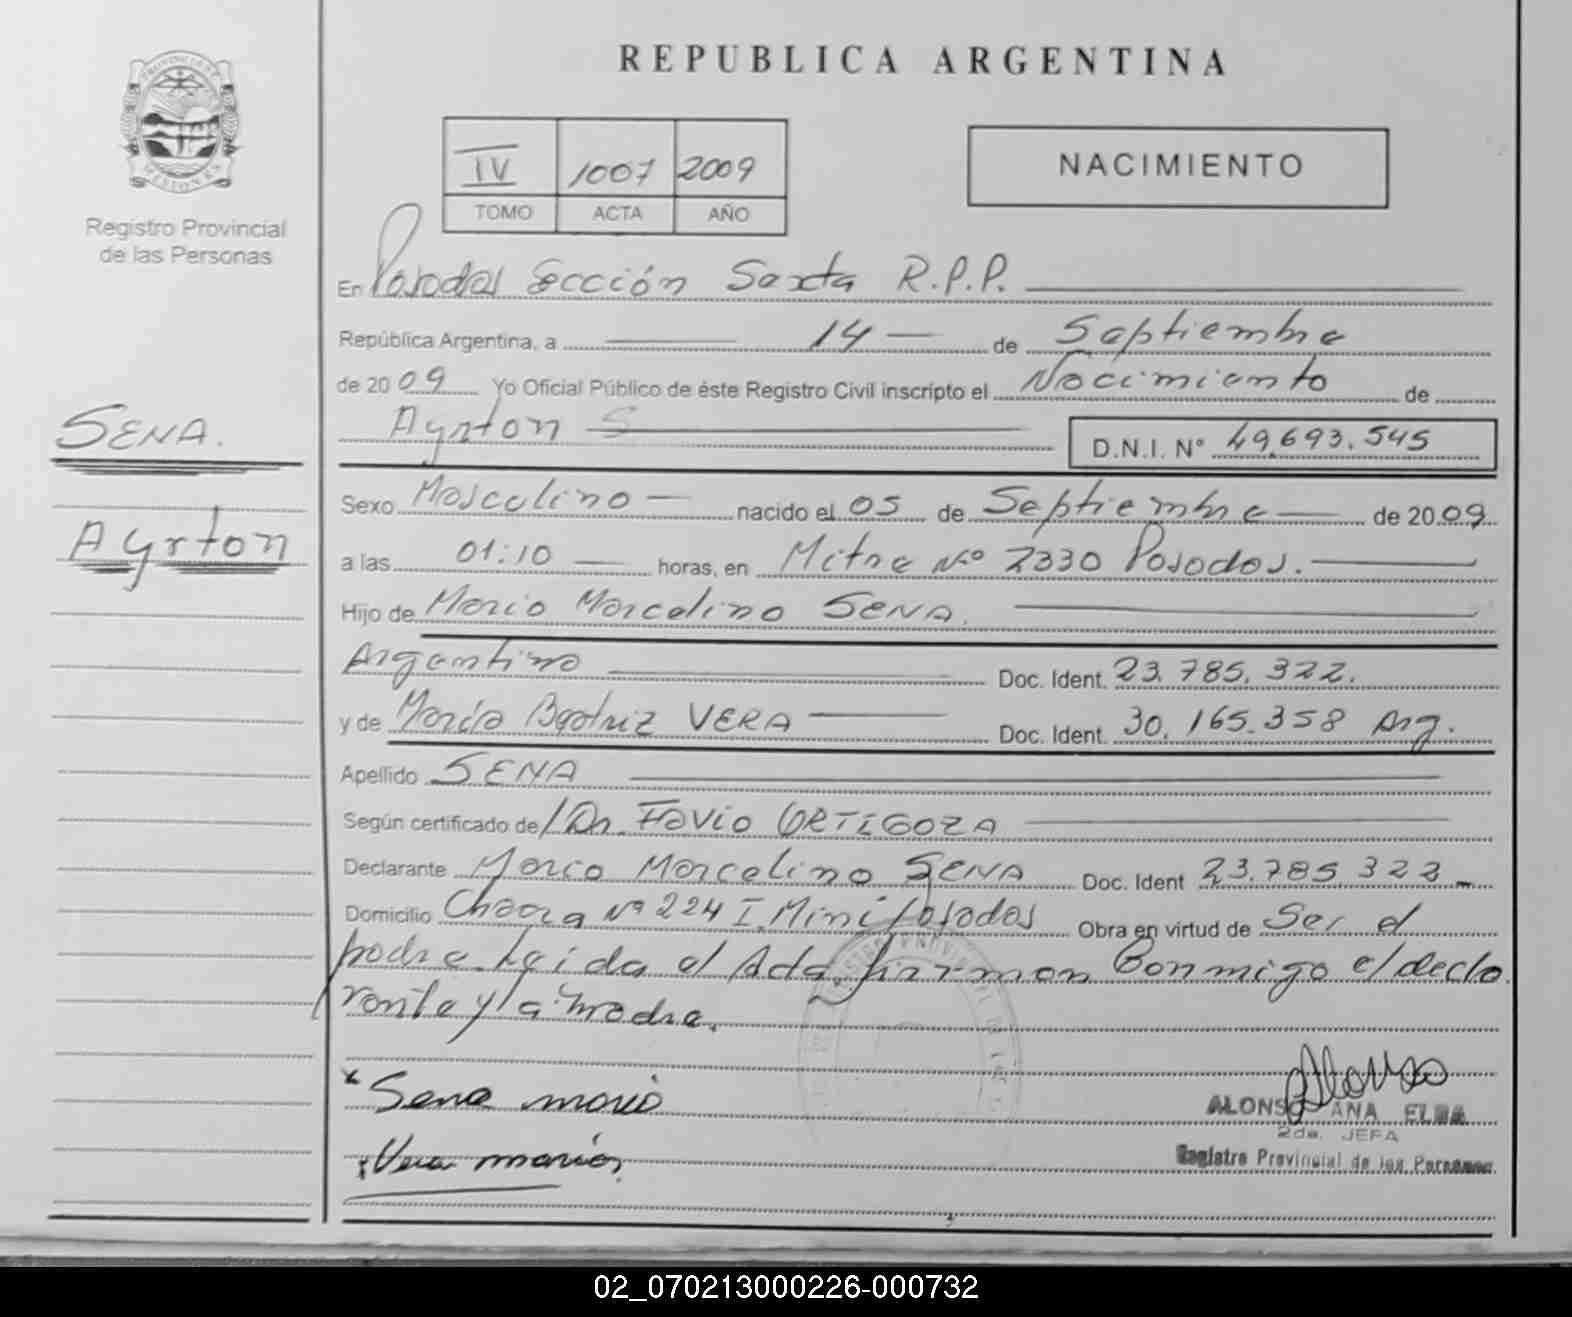 REPUBLICA ARGENTINA
PROVINCIA DE
MISIONES
Registro Provincial
de las Personas
IV 1007 2009
TOMO ACTA AÑO
NACIMIENTO
En Posadas Sección Sexta R.P.P.
República Argentina, a 14 de Septiembre
de 2009 Yo Oficial Público de éste Registro Civil inscripto el Nacimiento de
Ayrton S D.N.I. Nº 49.693.545
SENA.
Ayrton
Sexo Masculino nacido el 05 de Septiembre de 2009
a las 01:10 horas, en Mitre Nº 2330 Posadas.
Hijo de Mario Marcelino SENA.
Argentino Doc. Ident. 23.785.322.
y de María Beatriz VERA Doc. Ident. 30.165.358 Arg.
Apellido SENA
Según certificado de Dr. Favio ORTIGOZA
Declarante Marcelino SENA Doc. Ident 23.785.322
Domicilio Chacra Nº 224 I. Mini Posadas Obra en virtud de Ser el
padre Leída el Acta firman Conmigo el decla
rante y la madre.
x Sena mario
x Vera maria
ALONSO ANA ELBA
2da. JEFA
Registro Provincial de las Personas
02_070213000226-000732